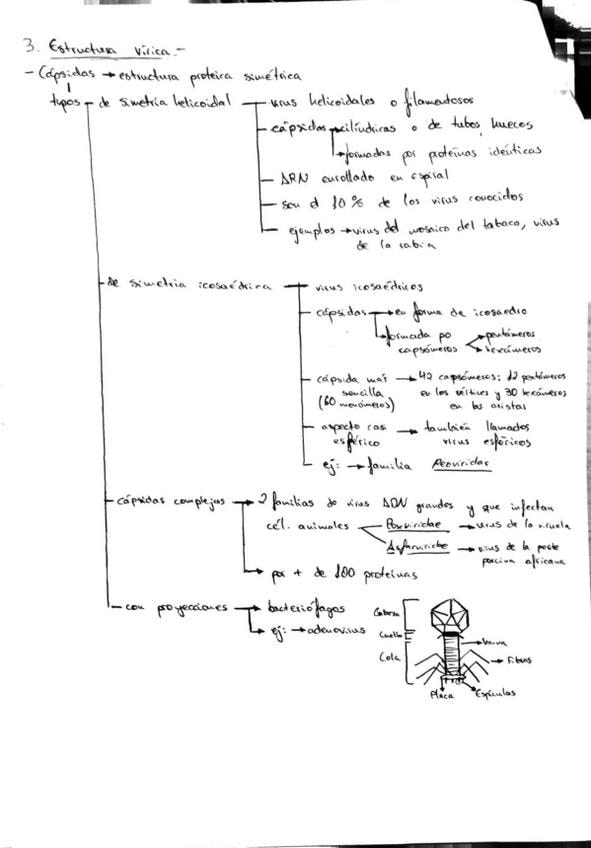 3. Estructura vírica.-
- Cápsidas → estructura proteica simétrica
tipos
- de simetría helicoidal
- virus helicoidales o filamentosos
- cápsidas → cilíndricas o de tubos huecos
→ formadas por proteínas idénticas
- ARN enrollado en espiral
- son el 10% de los virus conocidos
- ejemplos → virus del mosaico del tabaco, virus
de la rabia
- de simetría icosaédrica
- virus icosaédricos
- cápsidas → en forma de icosaedro
→ formada po
capsómeros
pentámeros
hexámeros
- cápsida más
sencilla
(60 monómeros)
→ 42 capsómeros: 12 pentámeros
en los vértices y 30 hexámeros
en las aristas
- aspecto casi
esférico
→ también llamados
virus esféricos
- ej: → familia Reoviridae
- cápsidas complejas → 2 familias de virus ADN grandes y que infectan
cél. animales
Poxviridae → virus de la viruela
Asfarviridae → virus de la peste
porcina africana
→ por + de 100 proteínas
- con proyecciones → bacteriófagos
→ ej: → adenovirus
Cabeza
Cuello
Cola
Vaina
Fibras
Placa
Espículas